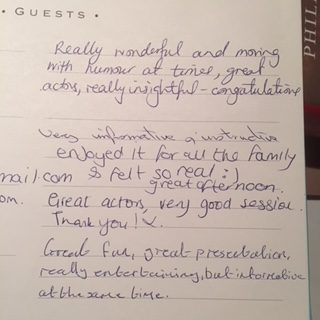 • GUESTS •
PHIL
Really wonderful and moving
with humour at times, great
actors, really insightful - congratulations
Very informative & instructive
enjoyed it for all the family
mail.com & felt so real :)
great afternoon.
om. Great actors, very good session.
Thank you! x.
Great fun, great presentation,
really entertaining, but informative
at the same time.